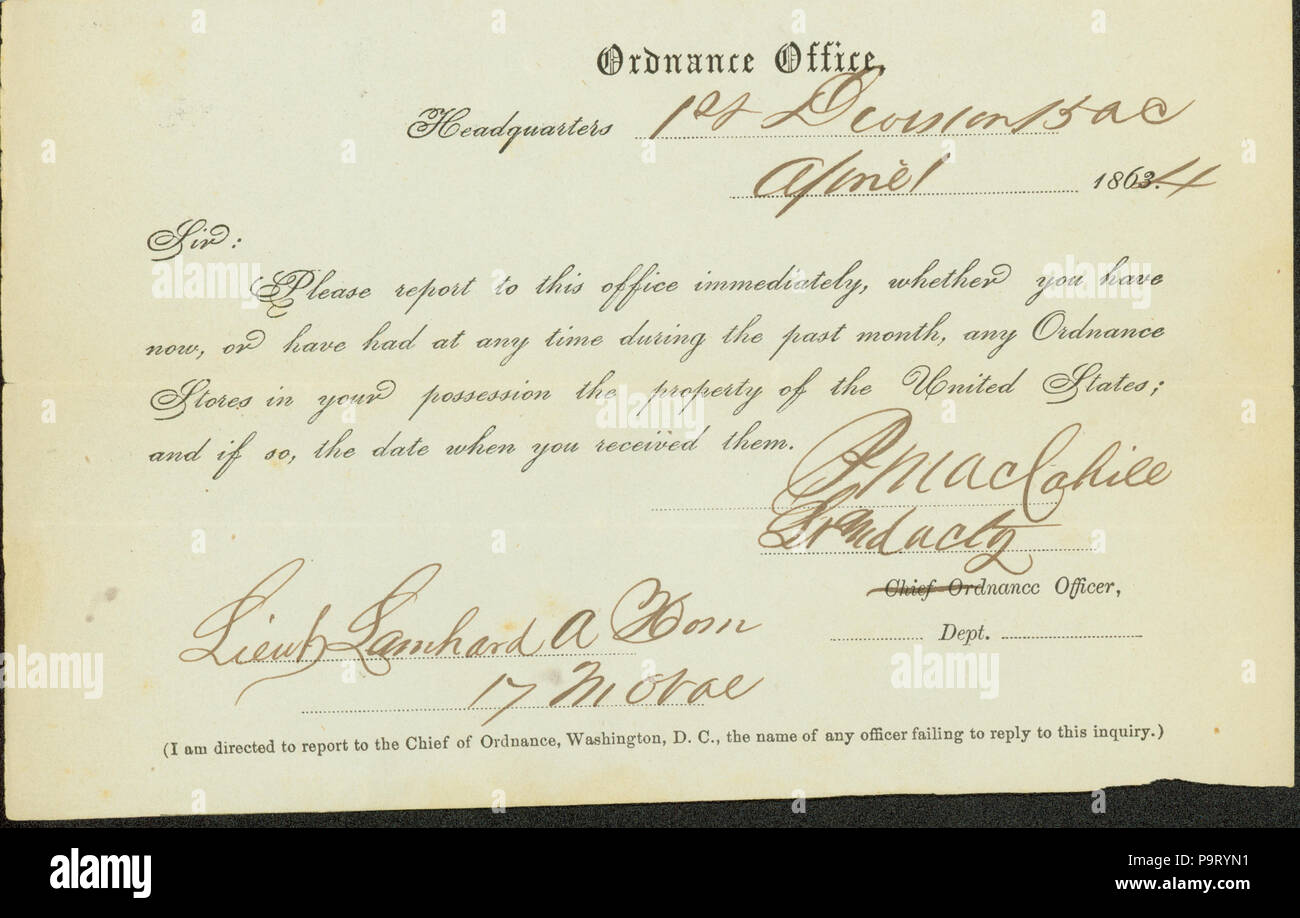 Ordnance Office,
Headquarters 1st Division 15 A C
April 1863. 4
Sir:
Please report to this office immediately, whether you have
now, or have had at any time during the past month, any Ordnance
Stores in your possession the property of the United States;
and if so, the date when you received them.
Lt and actg
Chief Ordnance Officer,
Dept.
Lieut Lamhard A Horn
17 Mo
(I am directed to report to the Chief of Ordnance, Washington, D. C., the name of any officer failing to reply to this inquiry.)
alamy
Image ID: P9RYN1
www.alamy.com